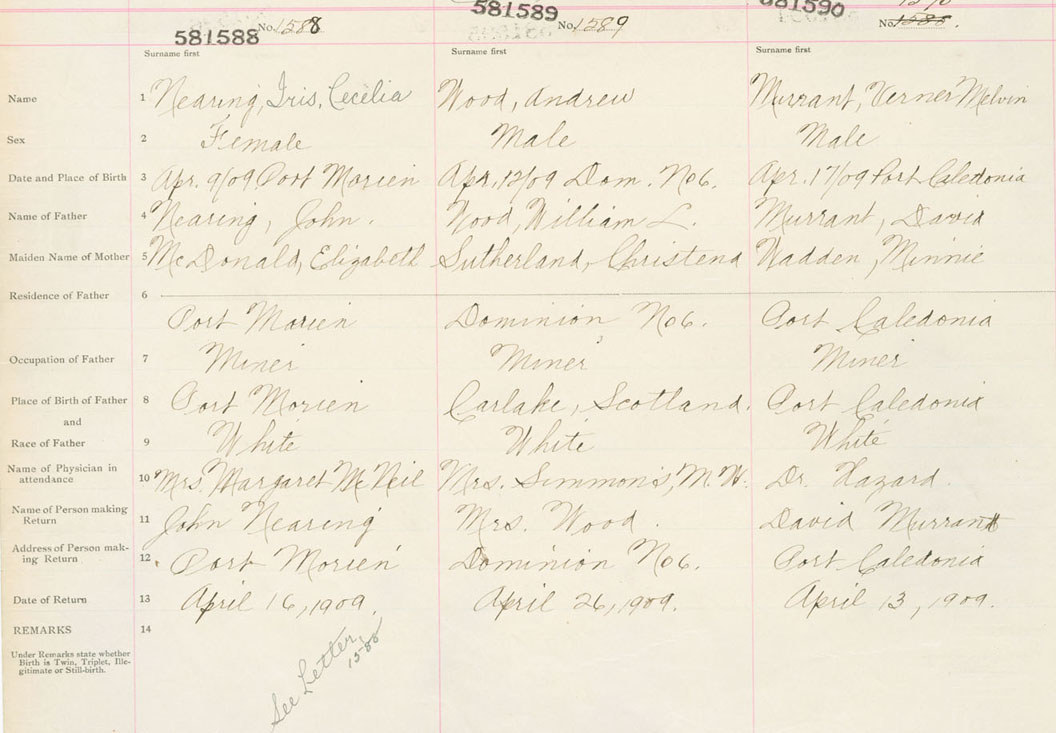 581588 No. 1588
581589 No. 1589
581590 No. 1588.
Surname first Surname first Surname first
Name 1 Nearing, Iris, Cecilia Wood, Andrew Murrant, Verner Melvin
Sex 2 Female Male Male
Date and Place of Birth 3 Apr. 9/09 Port Morien Apr. 12/09 Dom. No 6. Apr. 17/09 Port Caledonia
Name of Father 4 Nearing, John. Wood, William L. Murrant, David
Maiden Name of Mother 5 McDonald, Elizabeth Sutherland, Christena Wadden, Minnie
Residence of Father 6
Port Morien Dominion No 6. Port Caledonia
Occupation of Father 7 Miner Miner Miner
Place of Birth of Father 8 Port Morien Carlake, Scotland. Port Caledonia
and
Race of Father 9 White White White
Name of Physician in
attendance 10 Mrs. Margaret McNeil Mrs. Simmons, M.W. Dr. Hazard.
Name of Person making
Return 11 John Nearing Mrs. Wood. David Murrant
Address of Person mak-
ing Return 12 Port Morien Dominion No 6. Port Caledonia
Date of Return 13 April 16, 1909. April 26, 1909. April 13, 1909.
REMARKS 14
Under Remarks state whether
Birth is Twin, Triplet, Ille-
gitimate or Still-birth.
See Letter
1588